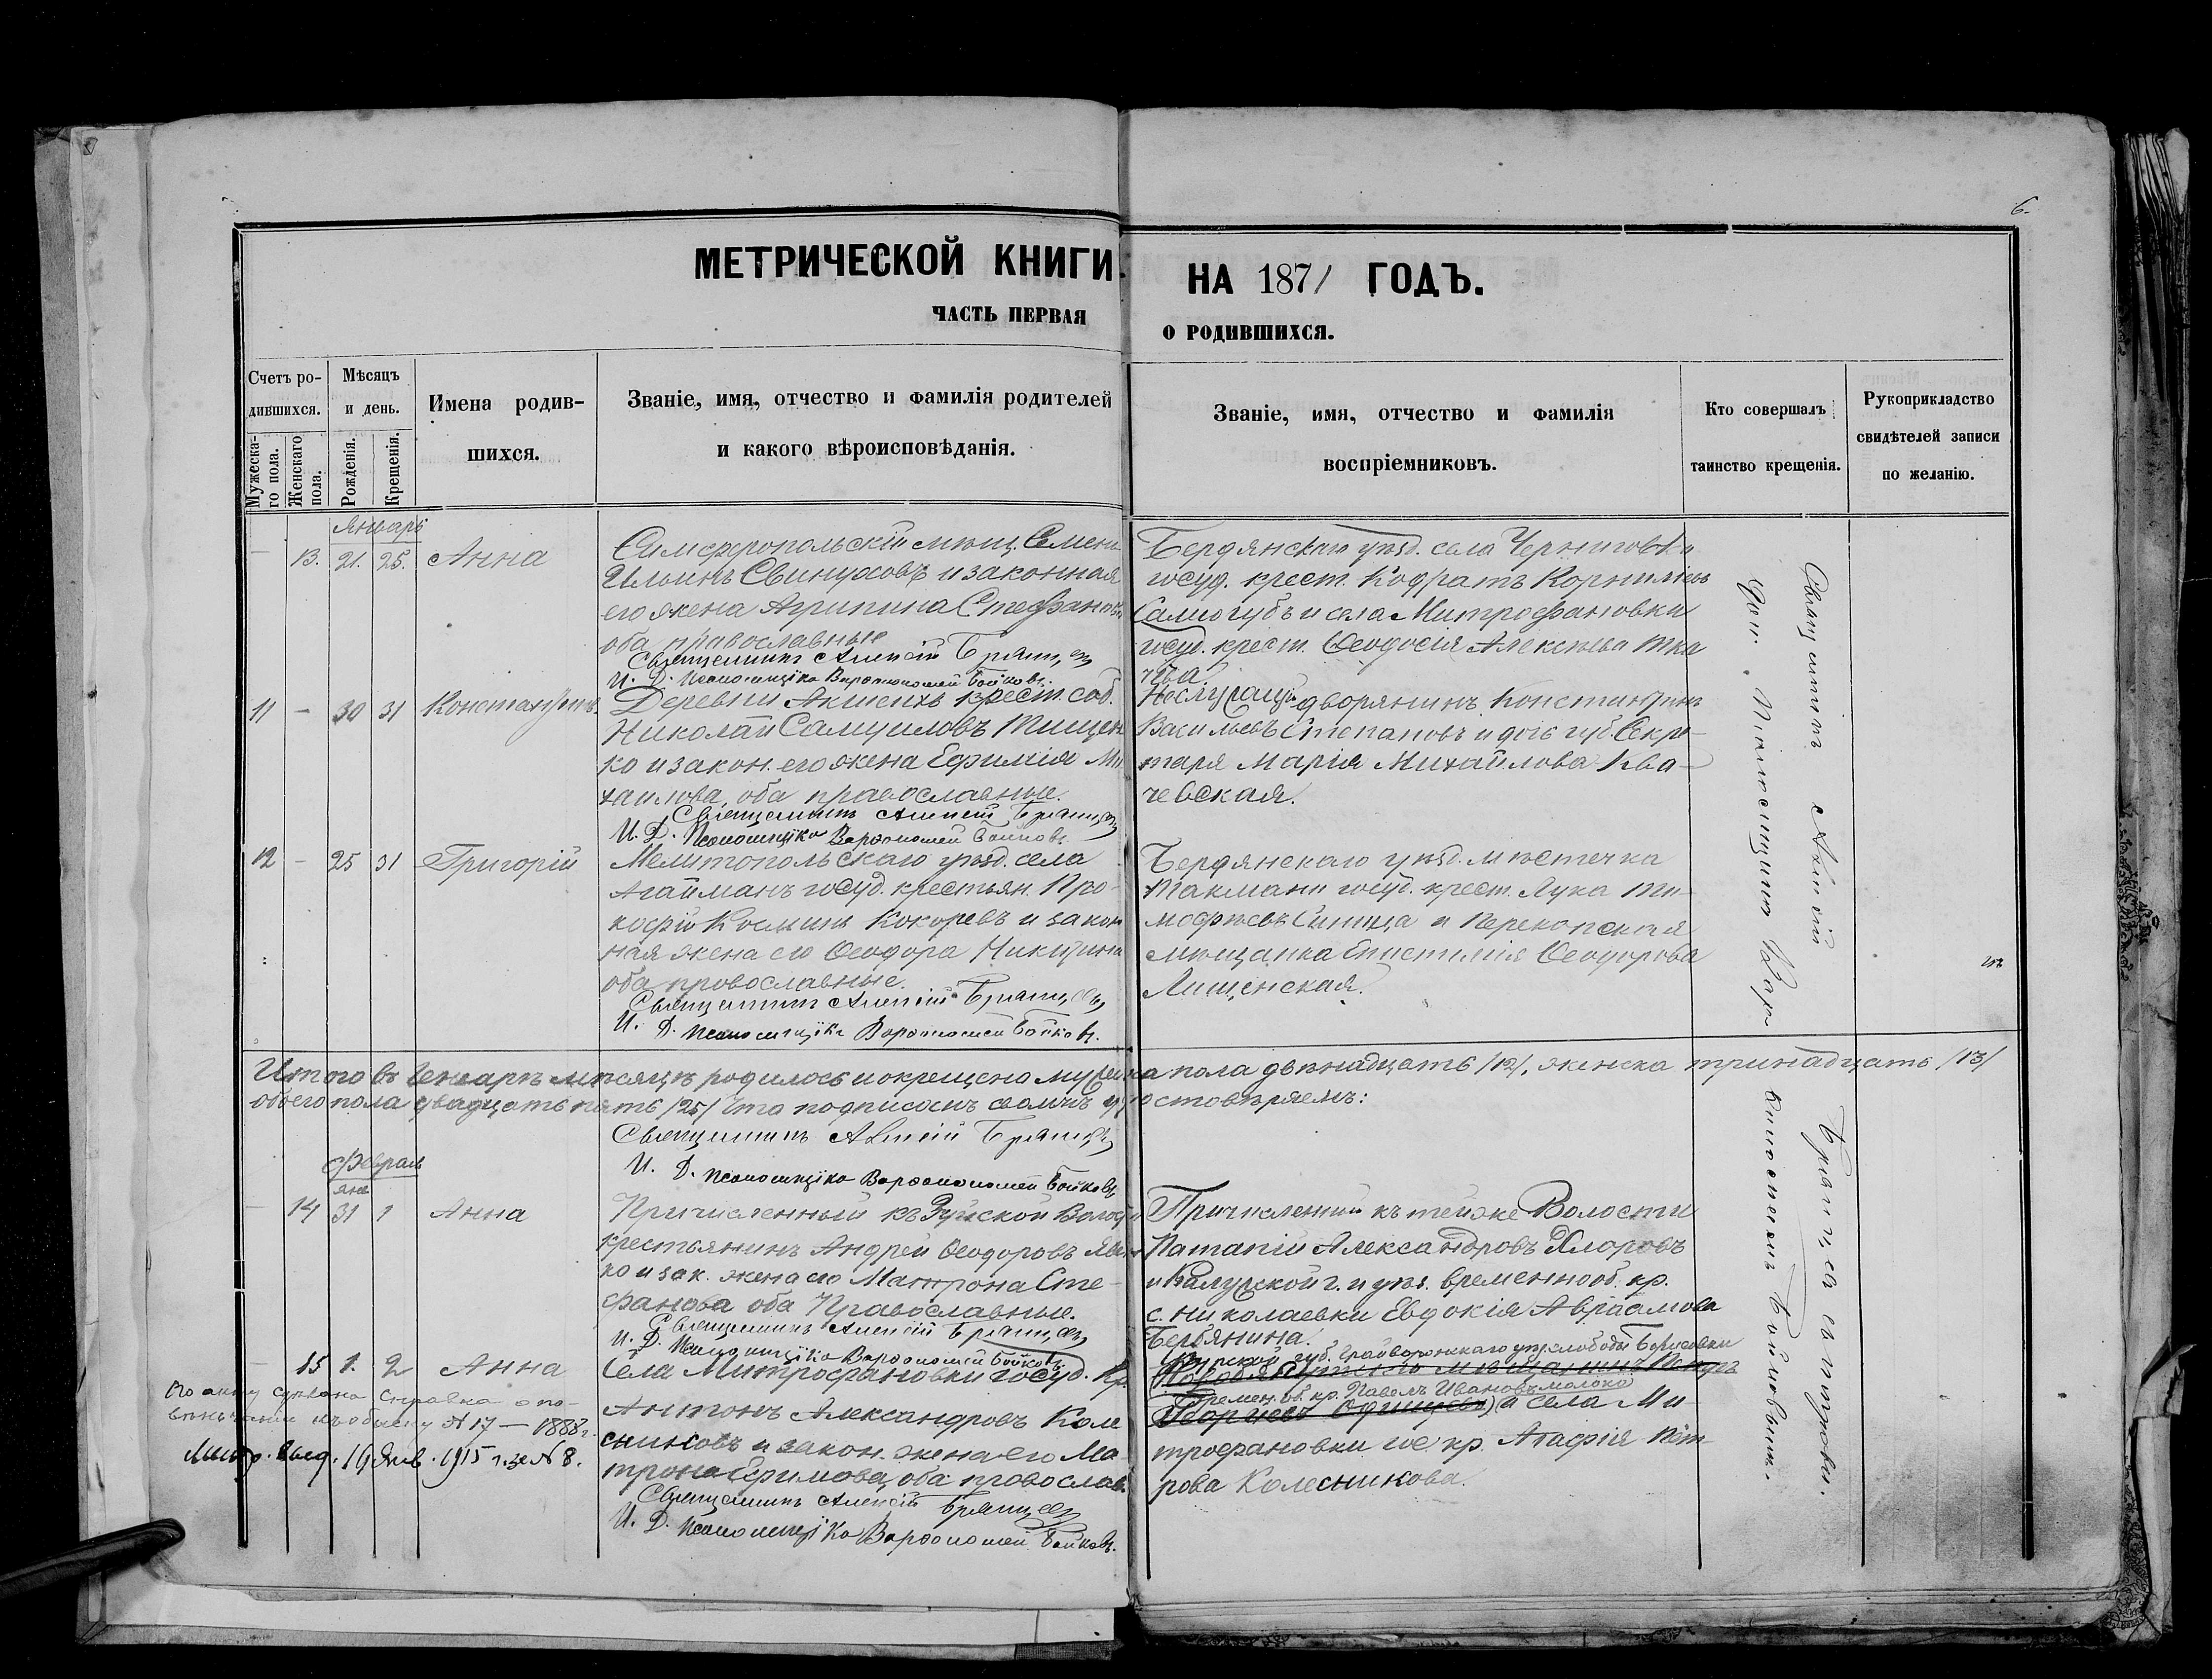 6.
МЕТРИЧЕСКОЙ КНИГИ НА 1871 ГОДЪ.
ЧАСТЬ ПЕРВАЯ О РОДИВШИХСЯ.
Счетъ ро-
дившихся.
Мужеска-
го пола.
Женскаго
пола.
Мѣсяцъ
и день.
Рожденія.
Крещенія.
Имена родив-
шихся.
Званіе, имя, отчество и фамилія родителей
и какого вѣроисповѣданія.
Званіе, имя, отчество и фамилія
воспріемниковъ.
Кто совершалъ
таинство крещенія.
Рукоприкладство
свидѣтелей записи
по желанію.
Январь
13. 21. 25. Анна
Симферопольскій мѣщ. Семенъ
Ильинъ Свинуховъ и законная
его жена Агрипина Стефанова
оба православные
Священникъ Алексій Брянцевъ
И. Д. Псаломщика Варѳоломей Бойковъ.
Бердянскаго уѣзд. села Черниговки
госуд. крест. Кодратъ Корниліевъ
Самогубъ и села Митрофановки
госуд. крест. Ѳеодосія Алексѣева Тка
чева
11 – 30 31 Константинъ.
Деревни Акшеихъ крест. соб.
Николай Самуиловъ Тищен
ко и закон. его жена Ефимія Ми
хаилова, оба православные.
Священникъ Алексій Брянцевъ
И. Д. Псаломщика Варѳоломей Бойковъ
дворянинъ Константинъ
Васильевъ Степановъ и дочь губ. Секре-
таря Марія Михайлова Ква-
чевская.
12 – 25 31 Григорій
Мелитопольскаго уѣзд. села
Агайманъ госуд. крестьян. Про-
кофій Косминъ Кокоревъ и закон
ная жена его Ѳеодора Никитина
оба провославные.
Священникъ Алексій Брянцевъ
И. Д. Псаломщика Варѳоломей Бойковъ.
Бердянскаго уѣзд. мѣстечка
Токмакъ госуд. крест. Лука Ти-
мофѣевъ Синица и Перекопская
мѣщанка Епистимія Ѳеодорова
Лищенская.
Итого въ Генварѣ мѣсяцѣ родилось и окрещено мужеска пола двѣнадцать /12/, женска тринадцать /13/
обоего пола двадцать пять /25/ Что подписомъ своимъ удостовѣряемъ:
Священникъ Алексій Брянцевъ
И. Д. Псаломщика Варѳоломей Бойковъ
Февраль
янв
14 31 1 Анна
Причисленный къ Зуйской Волости
крестьянинъ Андрей Ѳеодоровъ
ко и зак. жена его Матрона Сте-
фанова оба Православные.
Священникъ Алексій Брянцевъ
И. Д. Псаломщика Варѳоломей Бойковъ.
Причисленный къ тейже Волости
Патапій Александровъ Хлоровъ
и Калужской г. и уѣз. временнооб. кр.
с. Николаевки Евдокія Авраамова
15 1. 2 Анна
Села Митрофановки госуд. Кр.
Антонъ Александровъ Коле
сниковъ и закон. жена его Ма
трона Ефимова, оба провослав.
Священникъ Алексій Брянцевъ
И. Д. Псаломщика Варѳоломей Бойковъ.
Курской губ. Грайворонскаго уѣз. слободы Борисовки
Времен. об. кр. Павелъ Ивановъ Молоко
и села Ми-
трофановки гос кр. Агафія Пет-
рова Колесникова.
По акту сдѣлана справка о по-
вѣнчаніи къ обыску № 17 — 1888 г.
Метр. выд. 19 Янв. 1915 г. за № 8.
Священникъ Алексій Брянцевъ съ
Псаломщикомъ Вар-
ѳоломеемъ Бойковымъ.